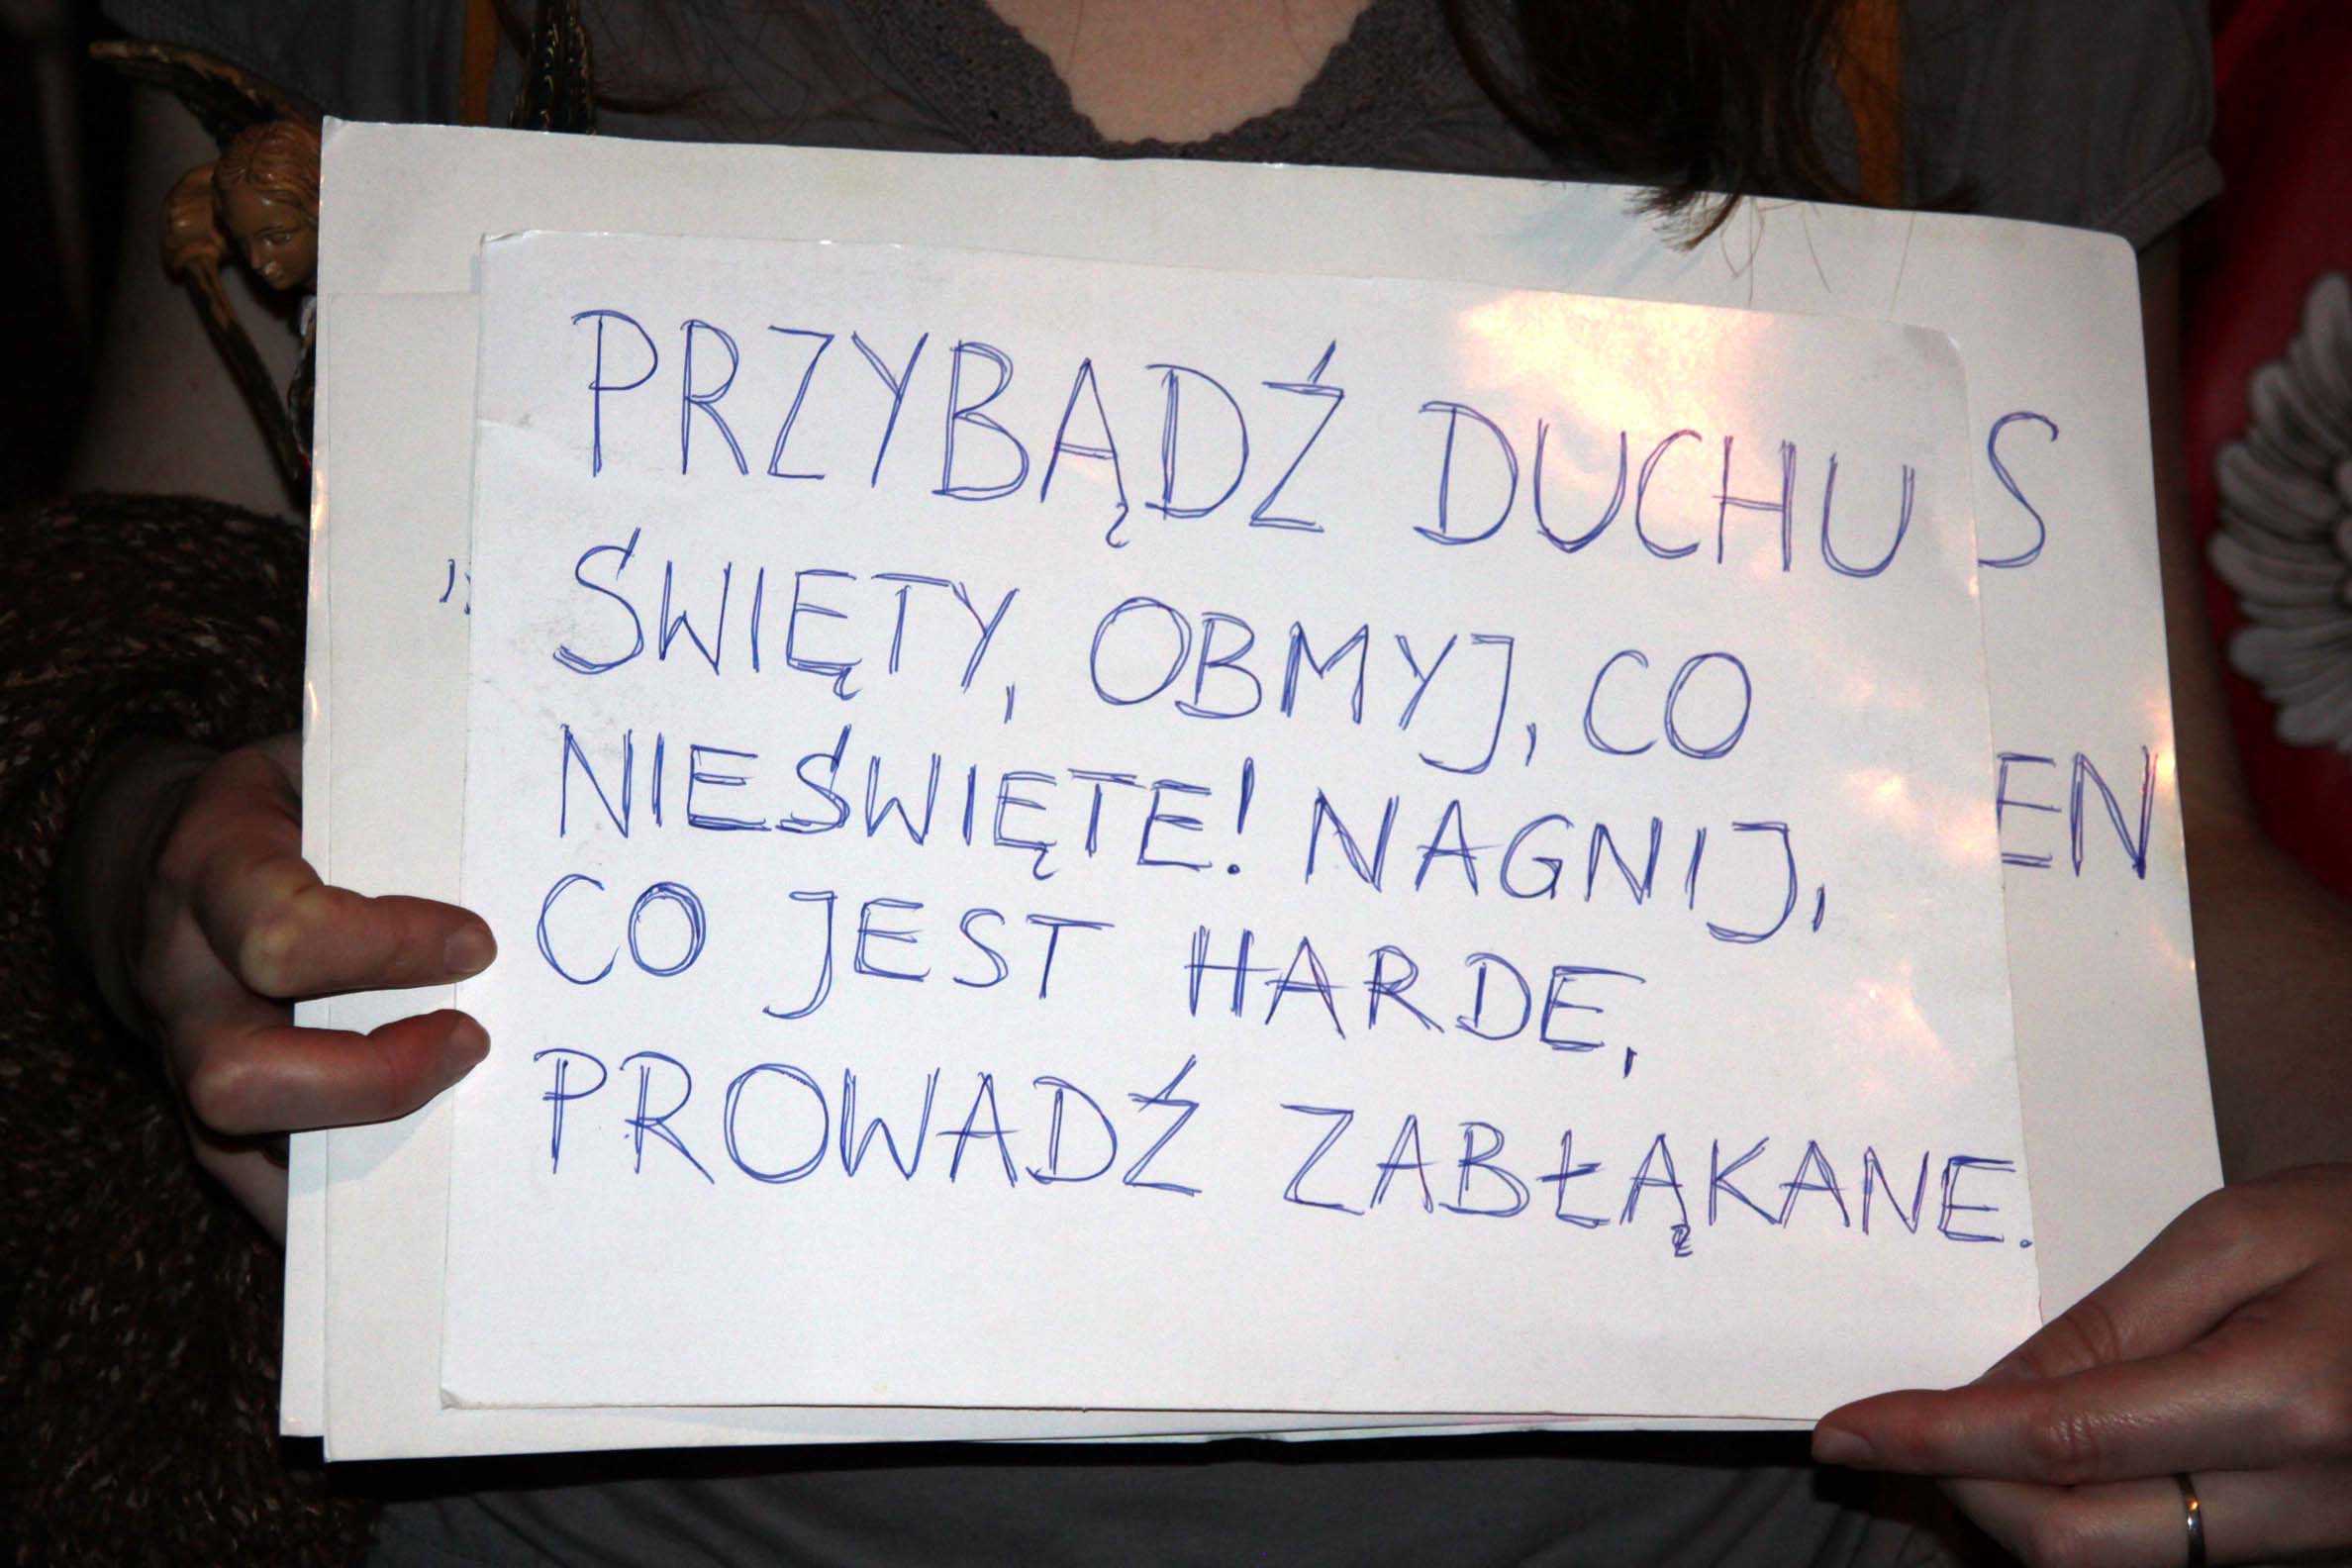 PRZYBĄDŹ DUCHU S
ŚWIĘTY, OBMYJ, CO
NIEŚWIĘTE! NAGNIJ,
EN
CO JEST HARDE,
PROWADŹ ZABŁĄKANE.